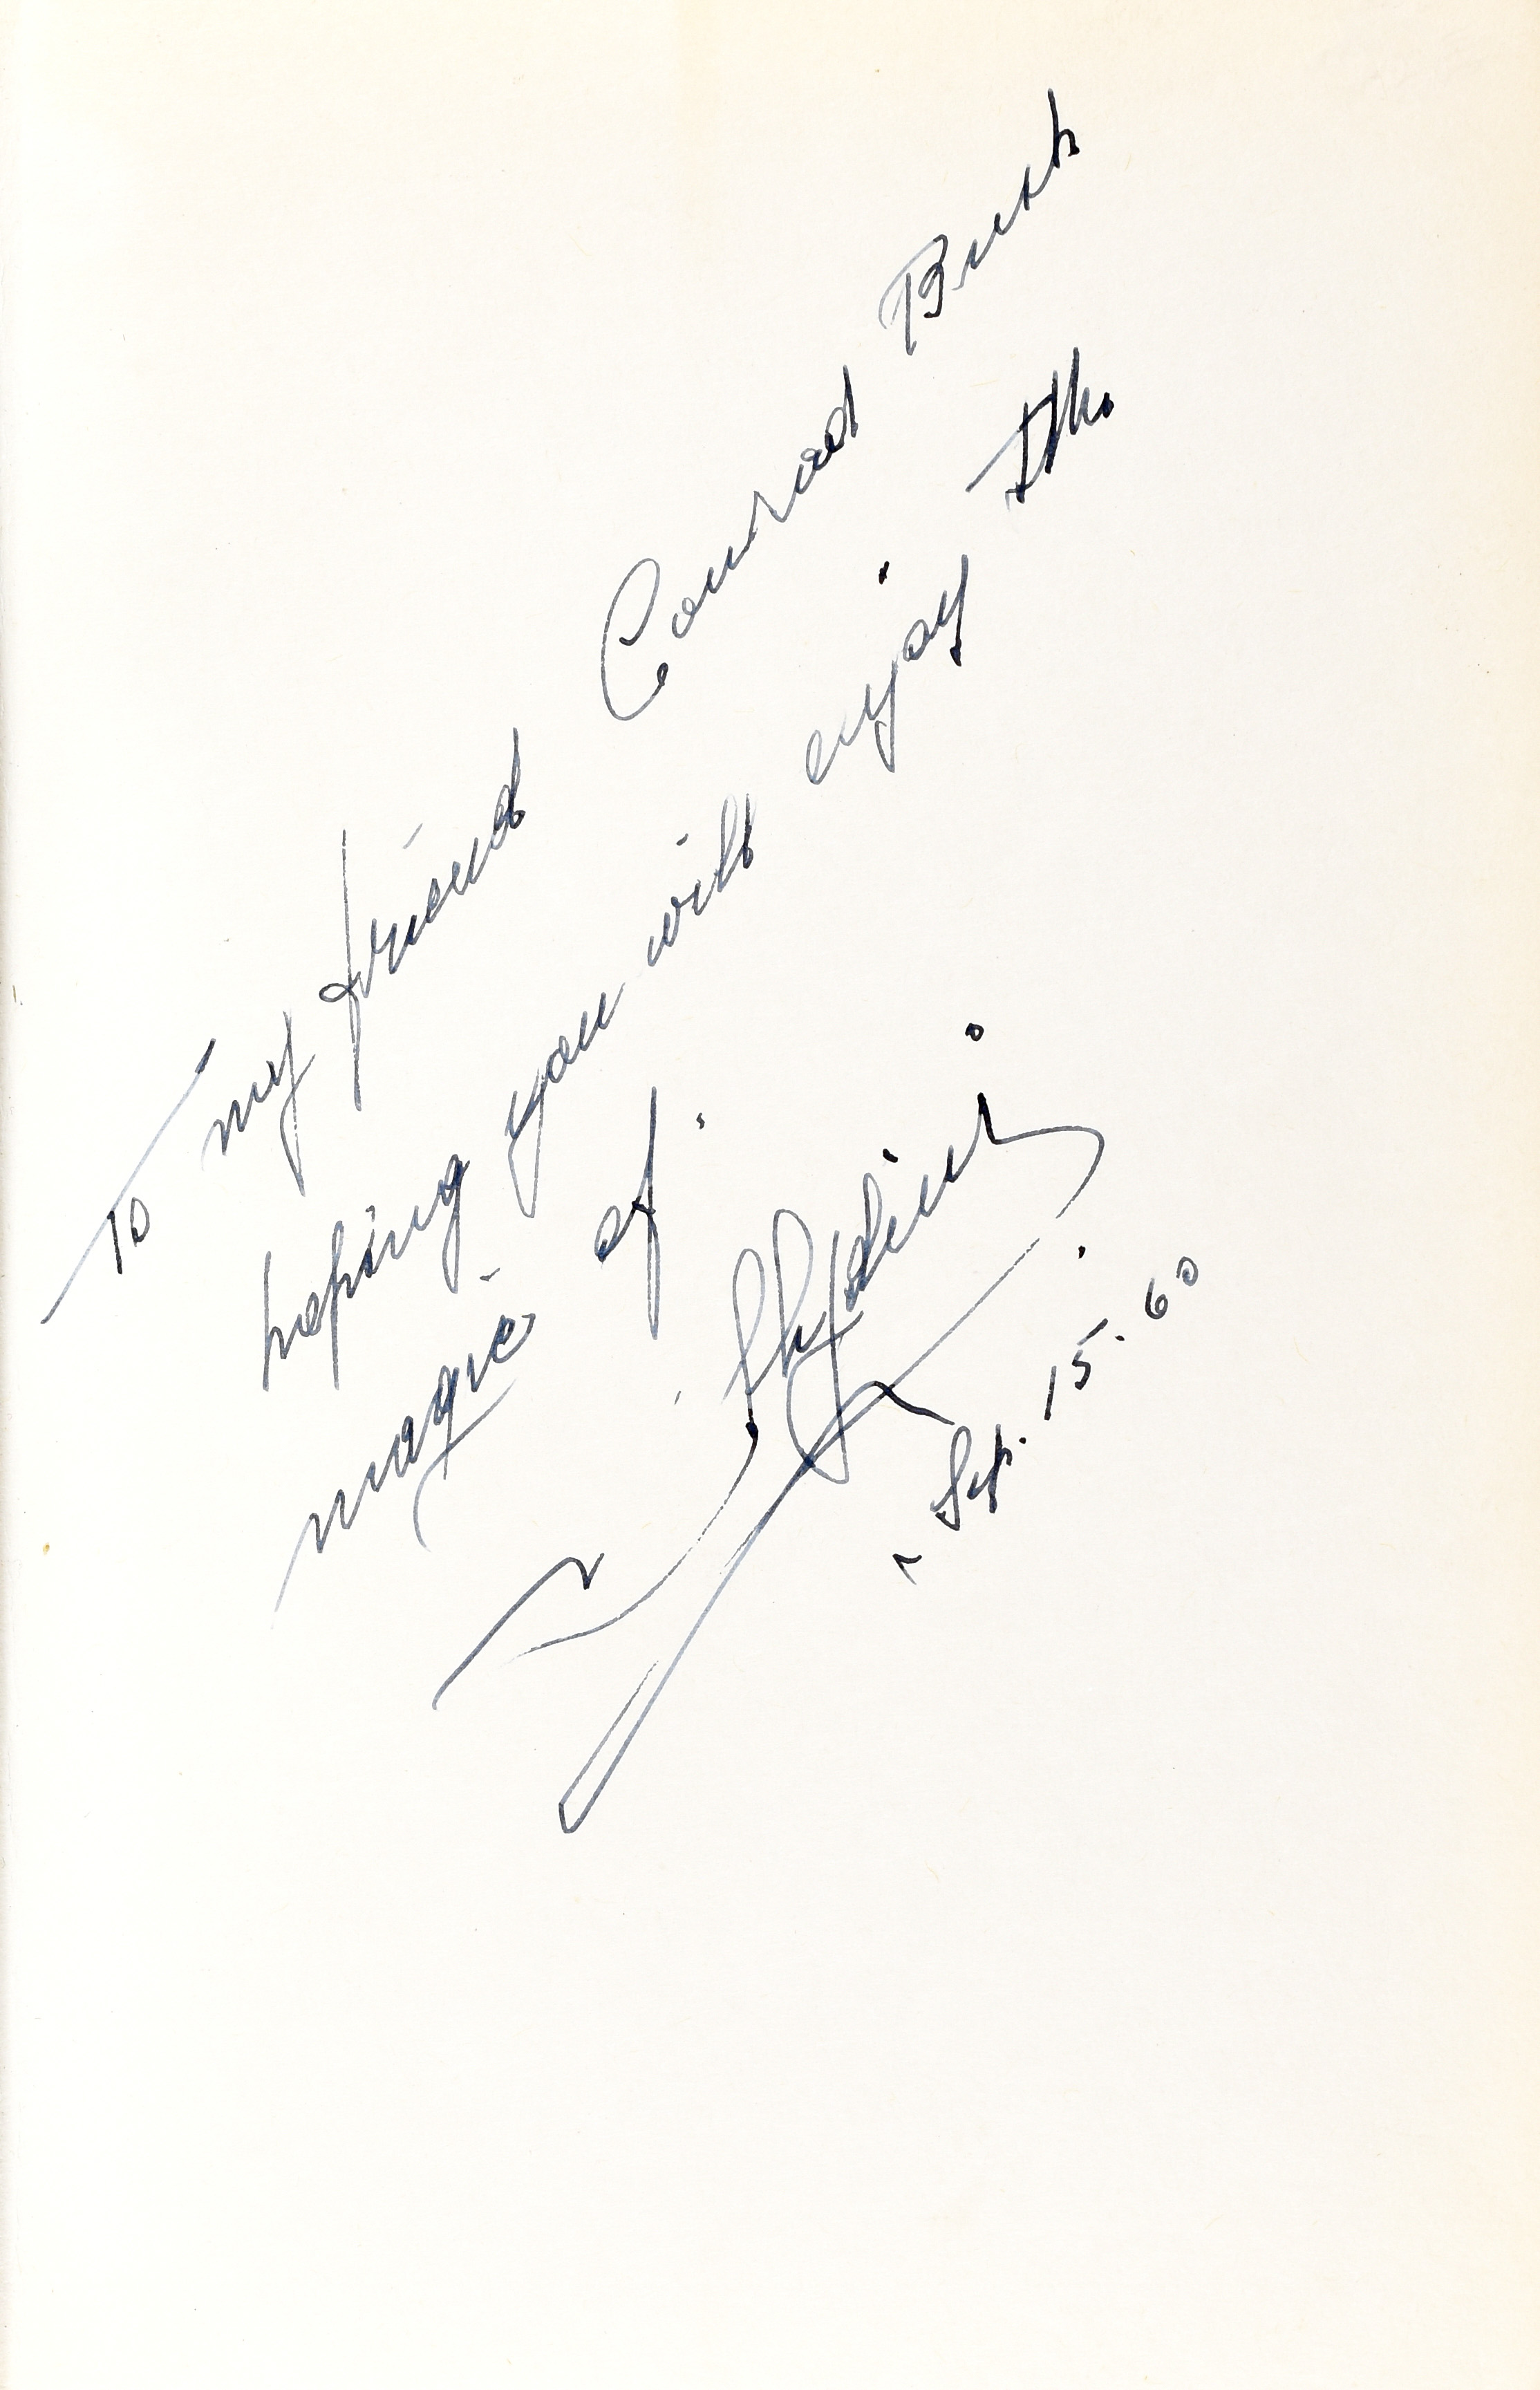 To my friend Conrad Bush
hoping you will enjoy the
magic of
Slydini
Sep. 15. 60